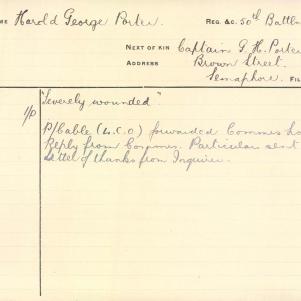 ME Harold George Porter. REG. &C. 50th Battln
NEXT OF KIN Captain G. H. Porter
ADDRESS Brown Street.
Semaphore. FIL
"Severely wounded".
1/P P/Cable (L.C.O) forwarded Commrs
Reply from Commrs. Particulars sent
Letter of thanks from Inquirer.